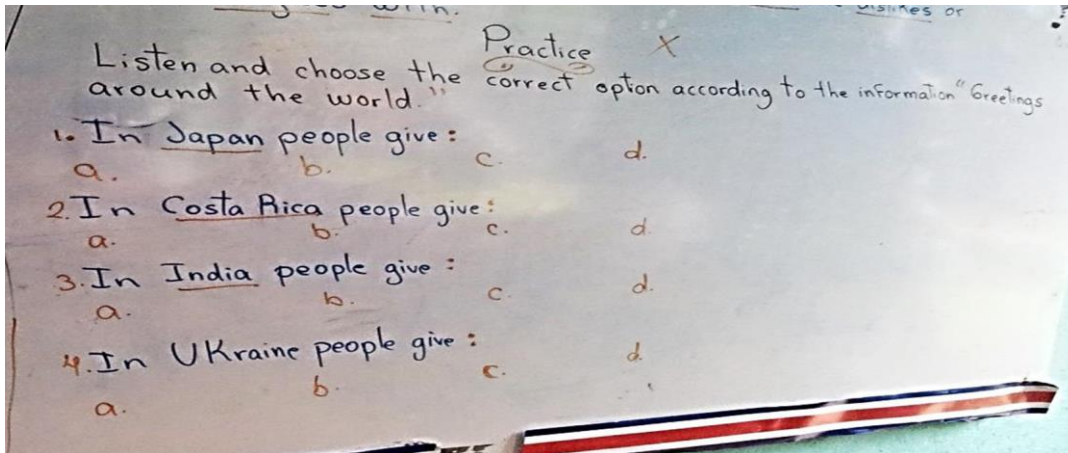 with.
dislikes or
Practice X
Listen and choose the correct option according to the information "Greetings
around the world."
1. In Japan people give:
a. b. c. d.
2. In Costa Rica people give:
a. b. c. d.
3. In India people give:
a. b. c. d.
4. In UKraine people give:
a. b. c. d.